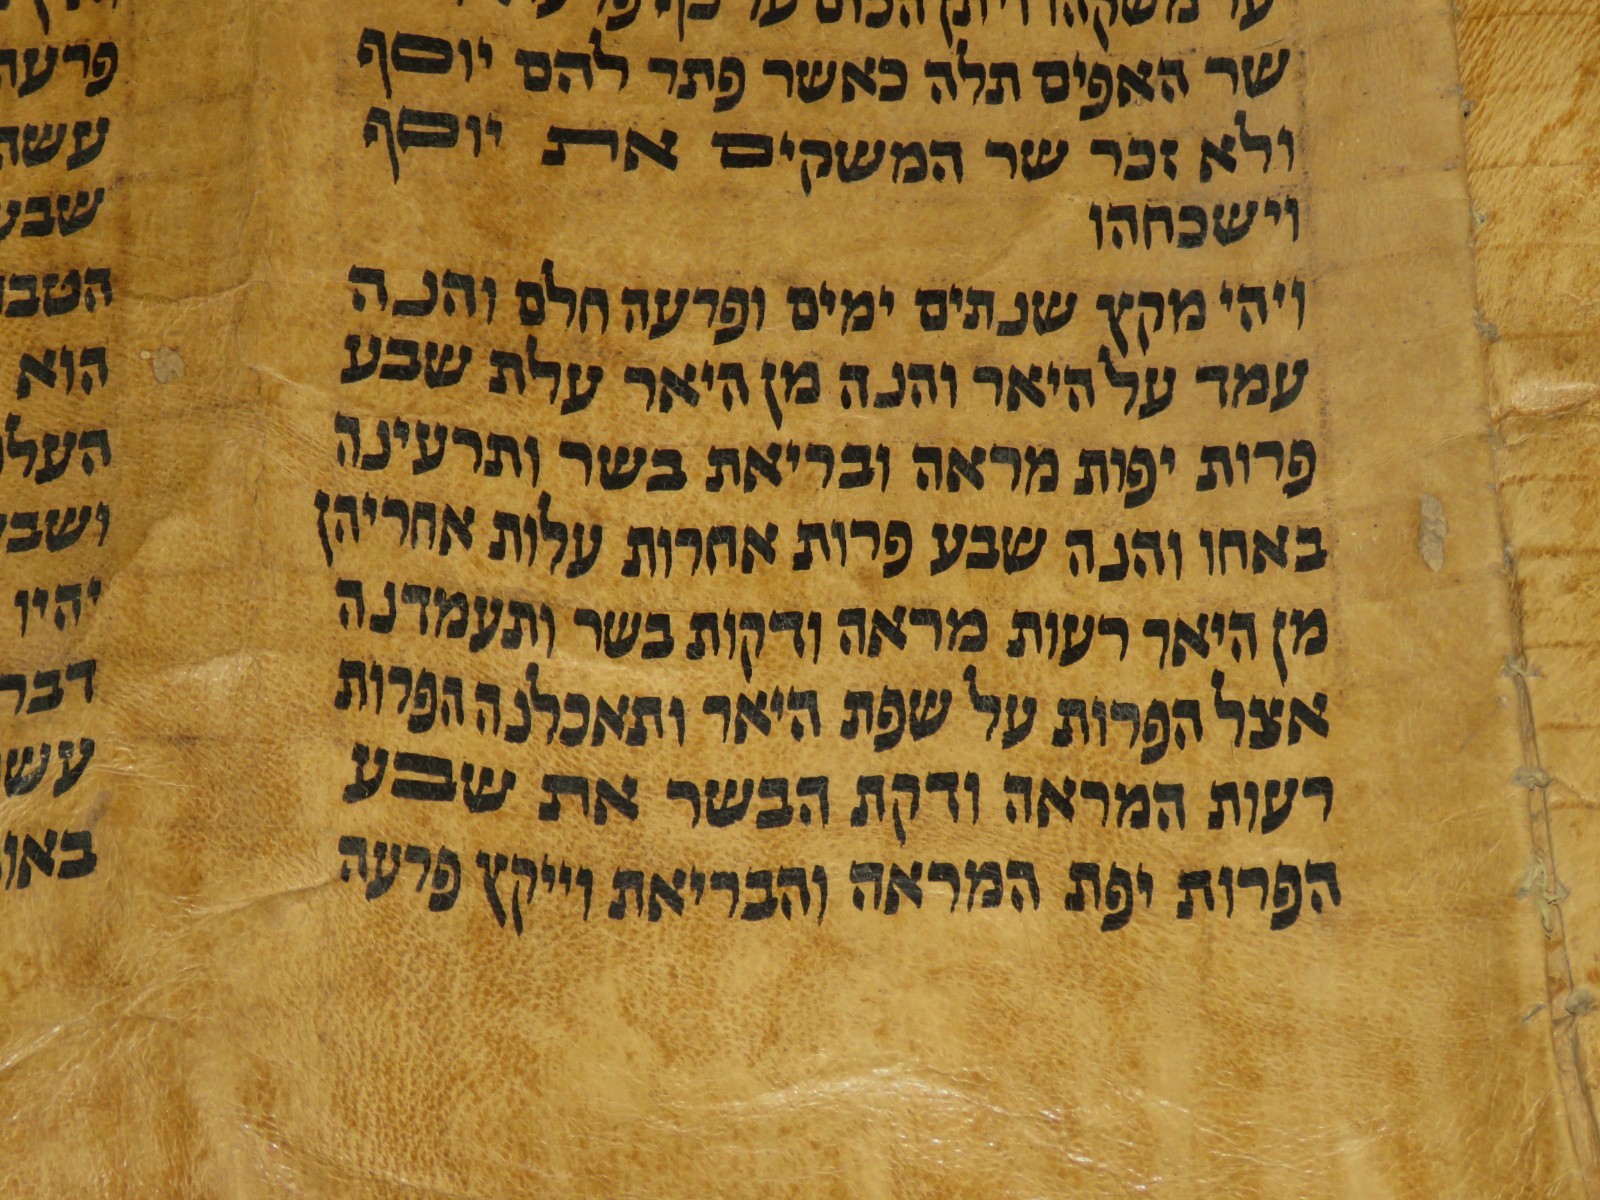 שר האפים תלה כאשר פתר להם יוסף
ולא זכר שר המשקים את יוסף
וישכחהו
ויהי מקץ שנתים ימים ופרעה חלם והנה
עמד על היאר והנה מן היאר עלת שבע
פרות יפות מראה ובריאת בשר ותרעינה
באחו והנה שבע פרות אחרות עלות אחריהן
מן היאר רעות מראה ודקות בשר ותעמדנה
אצל הפרות על שפת היאר ותאכלנה הפרות
רעות המראה ודקת הבשר את שבע
הפרות יפת המראה והבריאת וייקץ פרעה
פרעה
עשה
שבע
הוא
יהיו
דבר